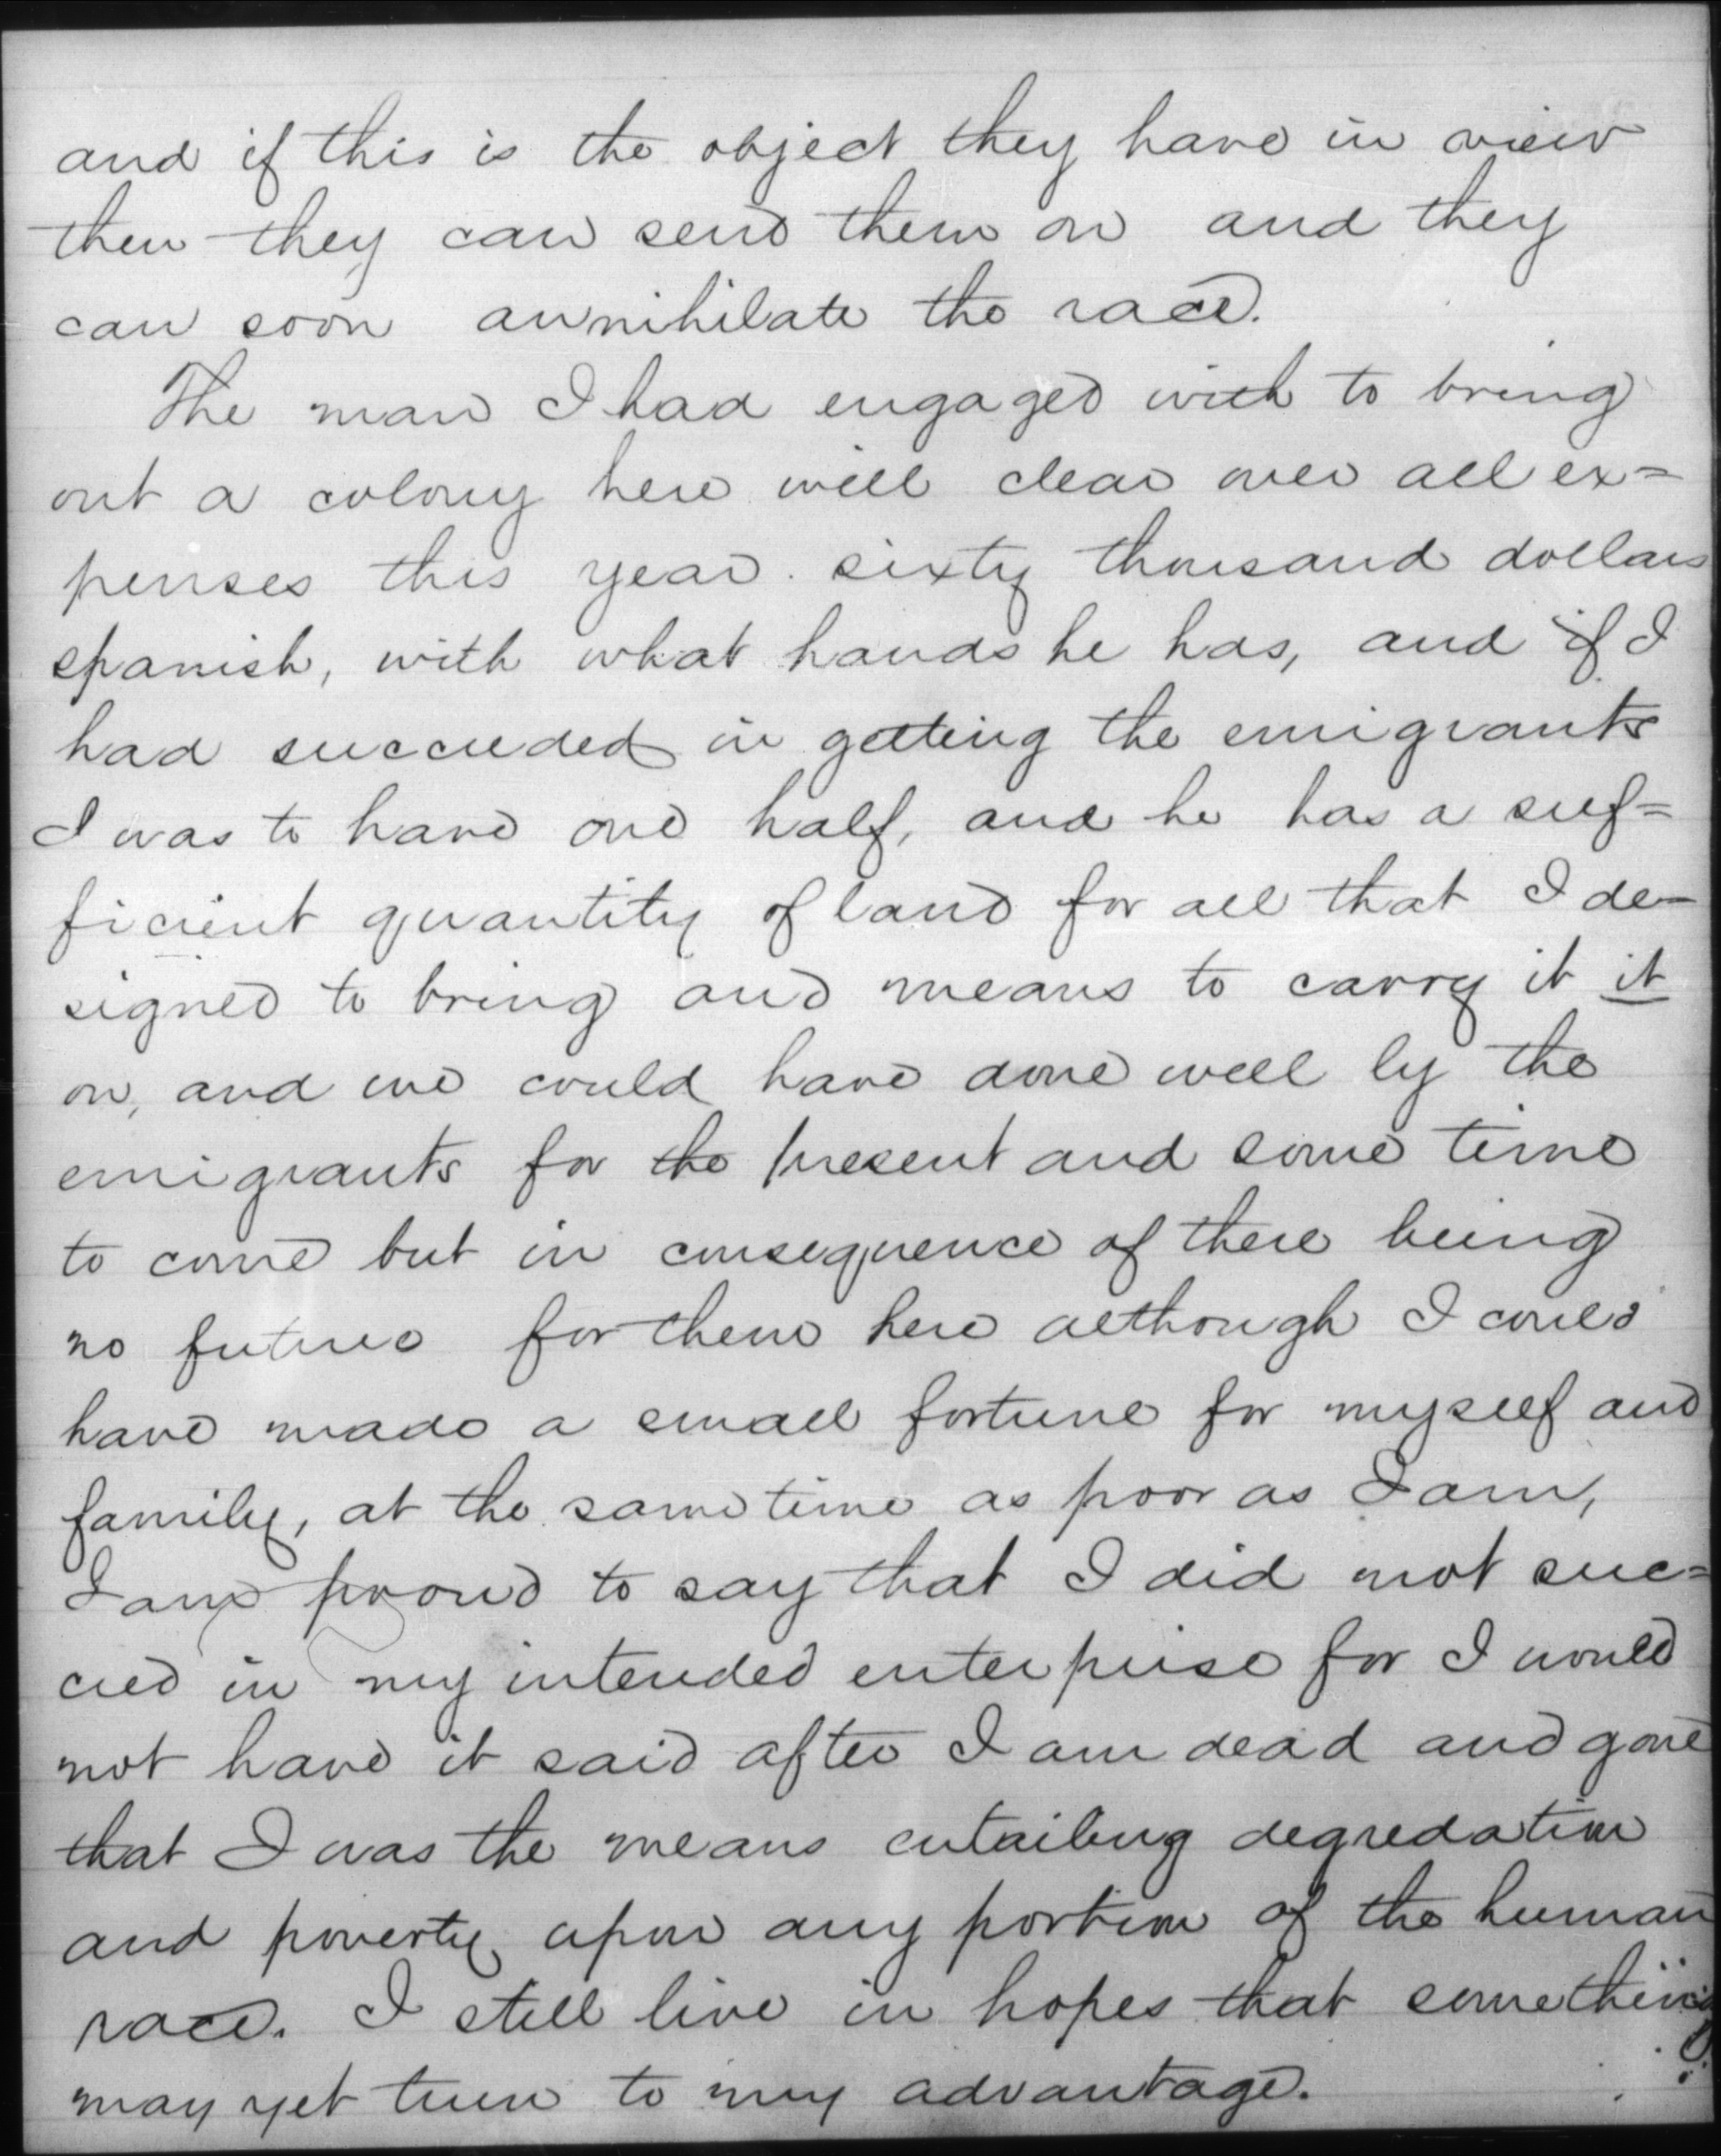 and if this is the object they have in view
then they can send them on and they
can soon annihilate the race.
The man I had engaged with to bring
out a colony here will clear over all ex=
penses this year sixty thousand dollars
spanish, with what hands he has, and if I
had succeeded in getting the emigrants
I was to have one half, and he has a suf=
ficient quantity of land for all that I de-
signed to bring and means to carry it it
on, and we could have done well by the
emigrants for the present and some time
to come but in consequence of there being
no future for them here although I could
have made a small fortune for myself and
family, at the same time as poor as I am,
I am proud to say that I did not suc=
ceed in my intended enterprise for I would
not have it said after I am dead and gone
that I was the means entailing degredation
and poverty upon any portion of the human
race. I still live in hopes that something
may yet turn to my advantage.